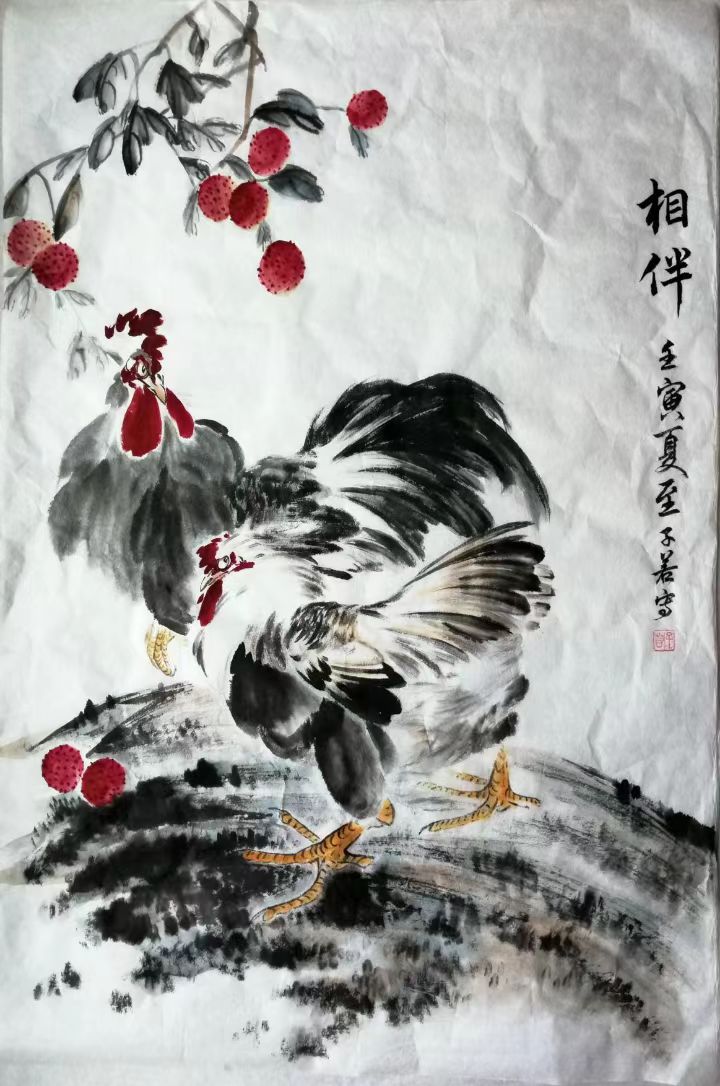 相伴
壬寅夏至子若写